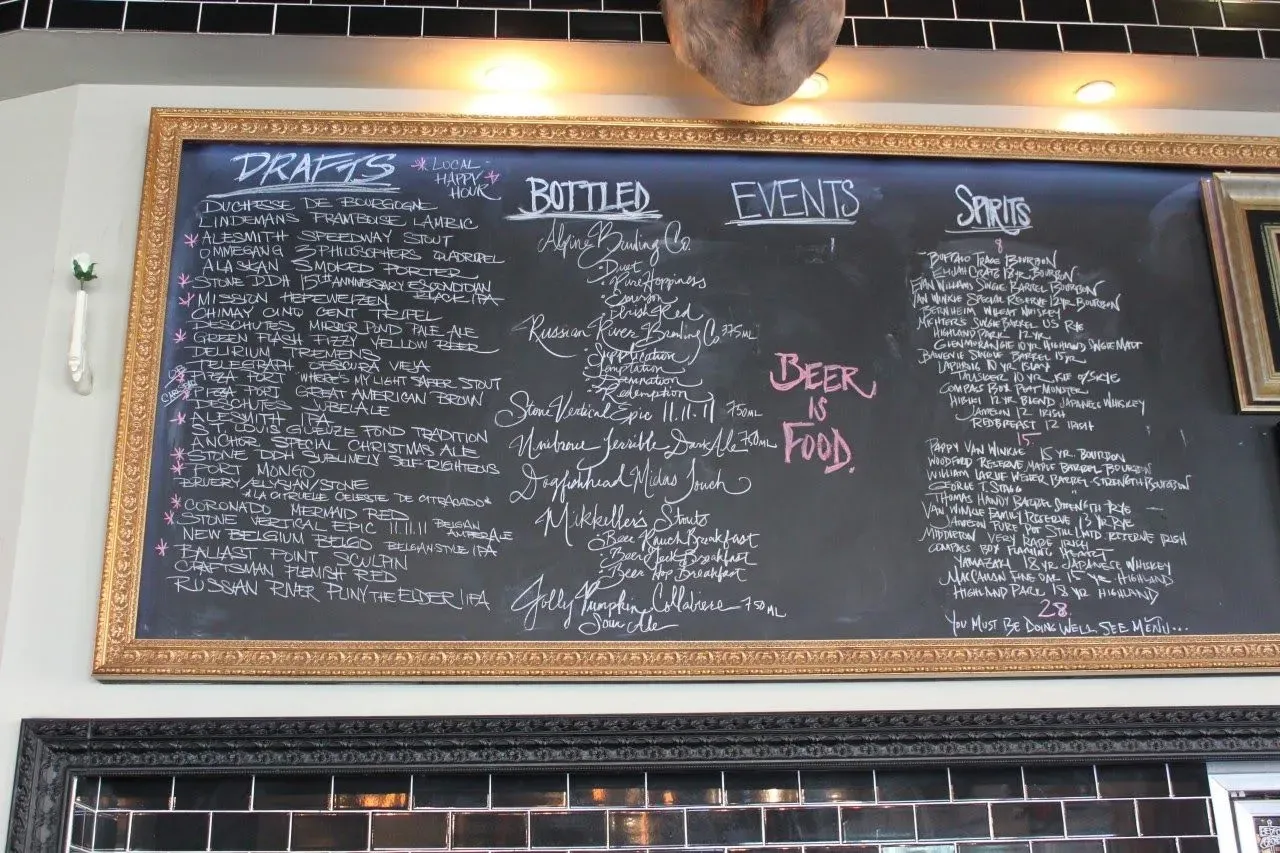 DRAFTS
* LOCAL
HAPPY *
HOUR
DUCHESSE DE BOURGOGNE
LINDEMANS FRAMBOISE LAMBIC
* ALESMITH SPEEDWAY STOUT
OMMEGANG 3 PHILOSOPHERS QUADRUPEL
ALASKAN SMOKED PORTER
* STONE DDH 15TH ANNIVERSARY ESCONDIDIAN
BLACK IPA
* MISSION HEFEWEIZEN
CHIMAY CINQ CENT TRIPEL
DESCHUTES MIRROR POND PALE ALE
* GREEN FLASH FIZZY YELLOW BEER
DELIRIUM TREMENS
TELEGRAPH OBSCURA VIEJA
PIZZA PORT WHERE'S MY LIGHT SABER STOUT
PIZZA PORT GREAT AMERICAN BROWN
DESCHUTES JUBELALE
* ALESMITH IPA
ST. LOUIS GUEUZE FOND TRADITION
ANCHOR SPECIAL CHRISTMAS ALE
* STONE DDH SUBLIMELY SELF RIGHTEOUS
* PORT MONGO
BRUERY/ELYSIAN/STONE
"LA CITRUEILLE CELESTE DE CITRACADO"
* CORONADO MERMAID RED
* STONE VERTICAL EPIC 11.11.11 BELGIAN
AMBER ALE
NEW BELGIUM BELGO BELGIAN STYLE IPA
* BALLAST POINT SCULPIN
CRAFTSMAN FLEMISH RED
RUSSIAN RIVER PLINY THE ELDER IPA
BOTTLED
Alpine Brewing Co.
Duet
Pure Happiness
Irish Red
Russian River Brewing Co. 375ML
Supplication
Temptation
Damnation
Redemption
Stone Vertical Epic 11.11.11 750ML
Unibroue Terrible Dark Ale 750ML
Dogfishhead Midas Touch
Mikkeller's Stouts
Beer Geek Breakfast
Beer Hop Breakfast
Jolly Pumpkin Collabiere 750ML
Sour Ale
EVENTS
BEER
IS
FOOD.
SPIRITS
8
BUFFALO TRACE BOURBON
ELIJAH CRAIG 18 YR. BOURBON
EVAN WILLIAMS SINGLE BARREL BOURBON
VAN WINKLE SPECIAL RESERVE 12 YR. BOURBON
BERNHEIM WHEAT WHISKEY
MICHTER'S SINGLE BARREL US RYE
HIGHLAND PARK 12 YR.
GLENMORANGIE 10 YR. HIGHLAND SINGLE MALT
BALVENIE SINGLE BARREL 15 YR.
LAPHROIG 10 YR. ISLAY
TALISKER 10 YR. ISLE OF SKYE
COMPASS BOX PEAT MONSTER
HIBIKI 12 YR. BLEND JAPANESE WHISKEY
JAMESON 12 IRISH
REDBREAST 12 IRISH
15
PAPPY VAN WINKLE 15 YR. BOURBON
WOODFORD RESERVE MAPLE BARREL BOURBON
WILLIAM LARUE WELLER BARREL STRENGTH BOURBON
GEORGE T. STAGG "
THOMAS HANDY BARREL STRENGTH RYE
VAN WINKLE FAMILY RESERVE 13 YR. RYE
JAMESON PURE POT STILL LMTD RESERVE IRISH
MIDDLETON VERY RARE IRISH
COMPASS BOX FLAMING HEART
YAMAZAKI 18 YR. JAPANESE WHISKEY
MACCALLAN FINE OAK 15 YR. HIGHLAND
HIGHLAND PARK 18 YR. HIGHLAND
28.
YOU MUST BE DOING WELL. SEE MENU...